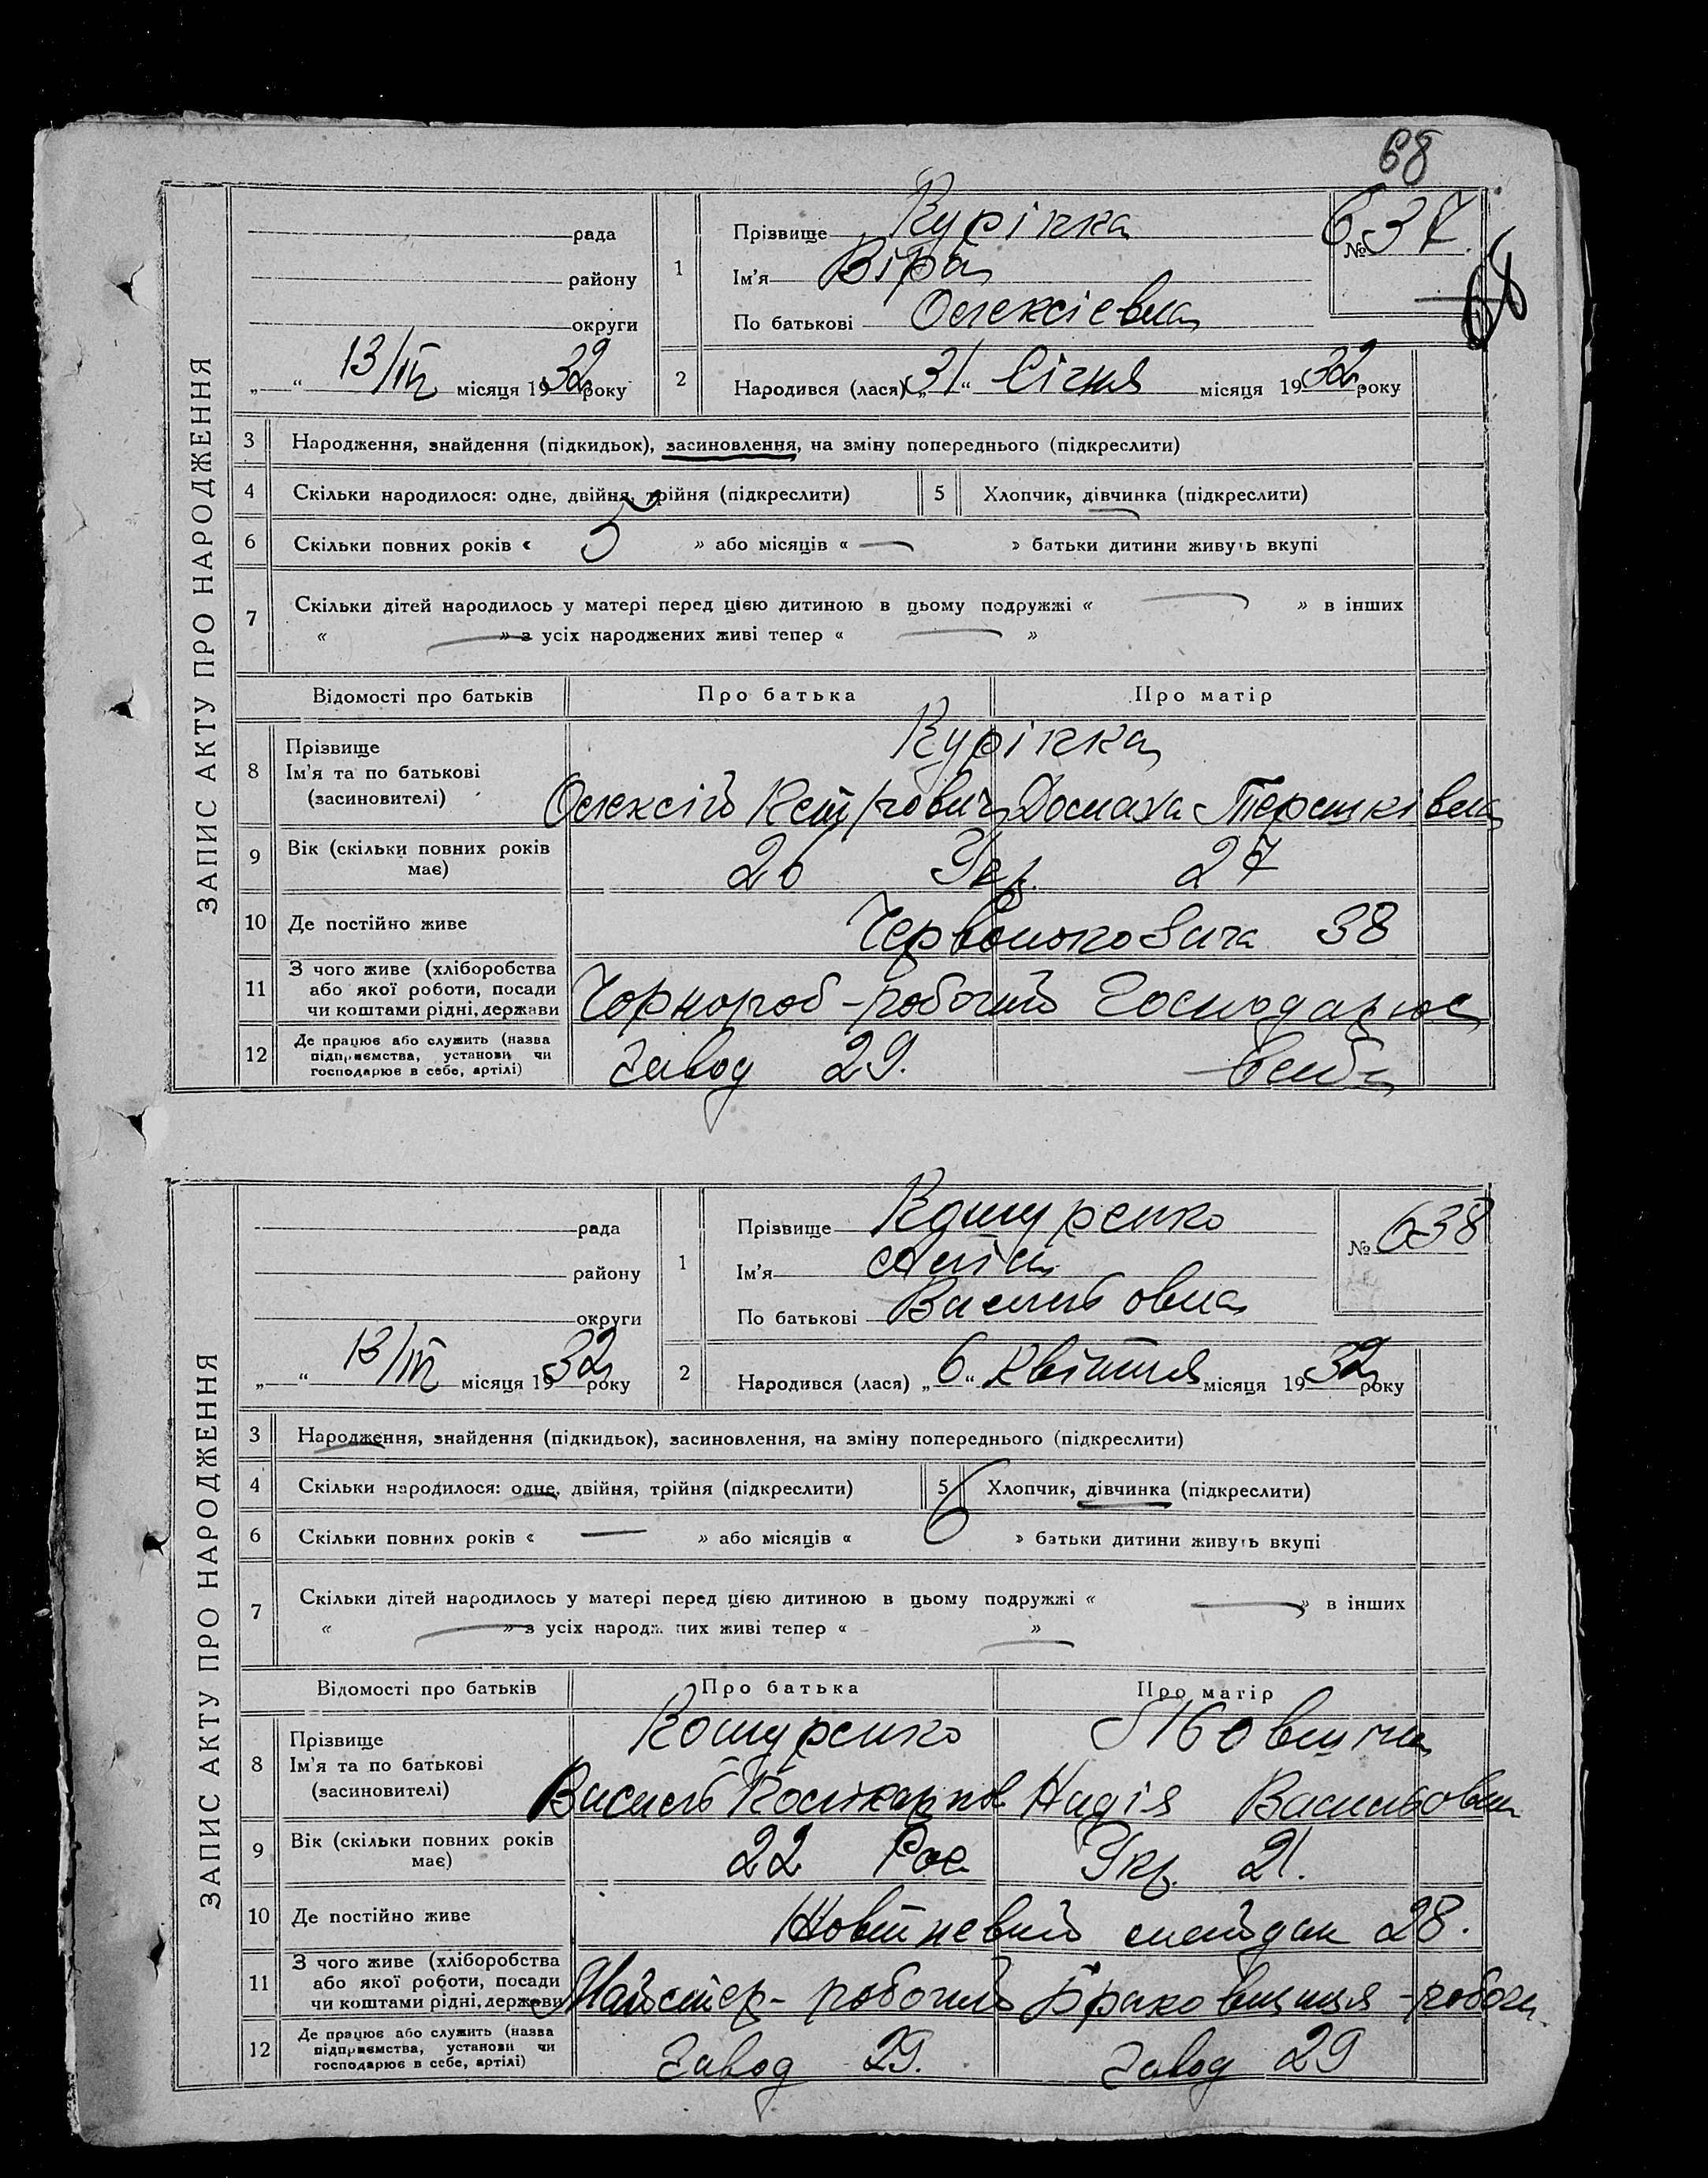 68
ЗАПИС АКТУ ПРО НАРОДЖЕННЯ
рада
району
округи
„ “ 13/ІV місяця 1932 року
1
Прізвище Курінка
Ім'я Віра
По батькові Олексієвна
№ 637.
68
2 Народився (лася) „31“ Січня місяця 1932 року
3 Народження, знайдення (підкидьок), засиновлення, на зміну попереднього (підкреслити)
4 Скільки народилося: одне, двійня, трійня (підкреслити)
5 Хлопчик, дівчинка (підкреслити)
6 Скільки повних років « 5 » або місяців « — » батьки дитини живуть вкупі
7 Скільки дітей народилось у матері перед цією дитиною в цьому подружжі « — » в інших
« — » з усіх народжених живі тепер « — »
Відомості про батьків Про батька Про матір
8 Прізвище Ім'я та по батькові (засиновителі)
Курінка
Олексій Петрович Домаха Терешківна
9 Вік (скільки повних років має) 26 Укр. 27
10 Де постійно живе 38
11 З чого живе (хліборобства або якої роботи, посади чи коштами рідні, держави Чорнороб - робочий Господарює
12 Де працює або служить (назва підприємства, установи чи господарює в себе, артілі) Завод 29. в себе
ЗАПИС АКТУ ПРО НАРОДЖЕННЯ
рада
району
округи
„ “ 13/ІV місяця 1932 року
1
Прізвище Кошуренко
Ім'я
По батькові Васильовна
№ 638
2 Народився (лася) „6“ Квітня місяця 1932 року
3 Народження, знайдення (підкидьок), засиновлення, на зміну попереднього (підкреслити)
4 Скільки народилося: одне, двійня, трійня (підкреслити)
5 Хлопчик, дівчинка (підкреслити)
6 Скільки повних років « — » або місяців « 6 » батьки дитини живуть вкупі
7 Скільки дітей народилось у матері перед цією дитиною в цьому подружжі « — » в інших
« — » з усіх народжених живі тепер « — »
Відомості про батьків Про батька Про матір
8 Прізвище Ім'я та по батькові (засиновителі)
Кошуренко
Василь Надія Васильовна
9 Вік (скільки повних років має) 22 Рос Укр. 21.
10 Де постійно живе Жовтневий майдан 28.
11 З чого живе (хліборобства або якої роботи, посади чи коштами рідні, держави Майстер - робочий Браковщиця - робоч.
12 Де працює або служить (назва підприємства, установи чи господарює в себе, артілі) Завод 29. Завод 29